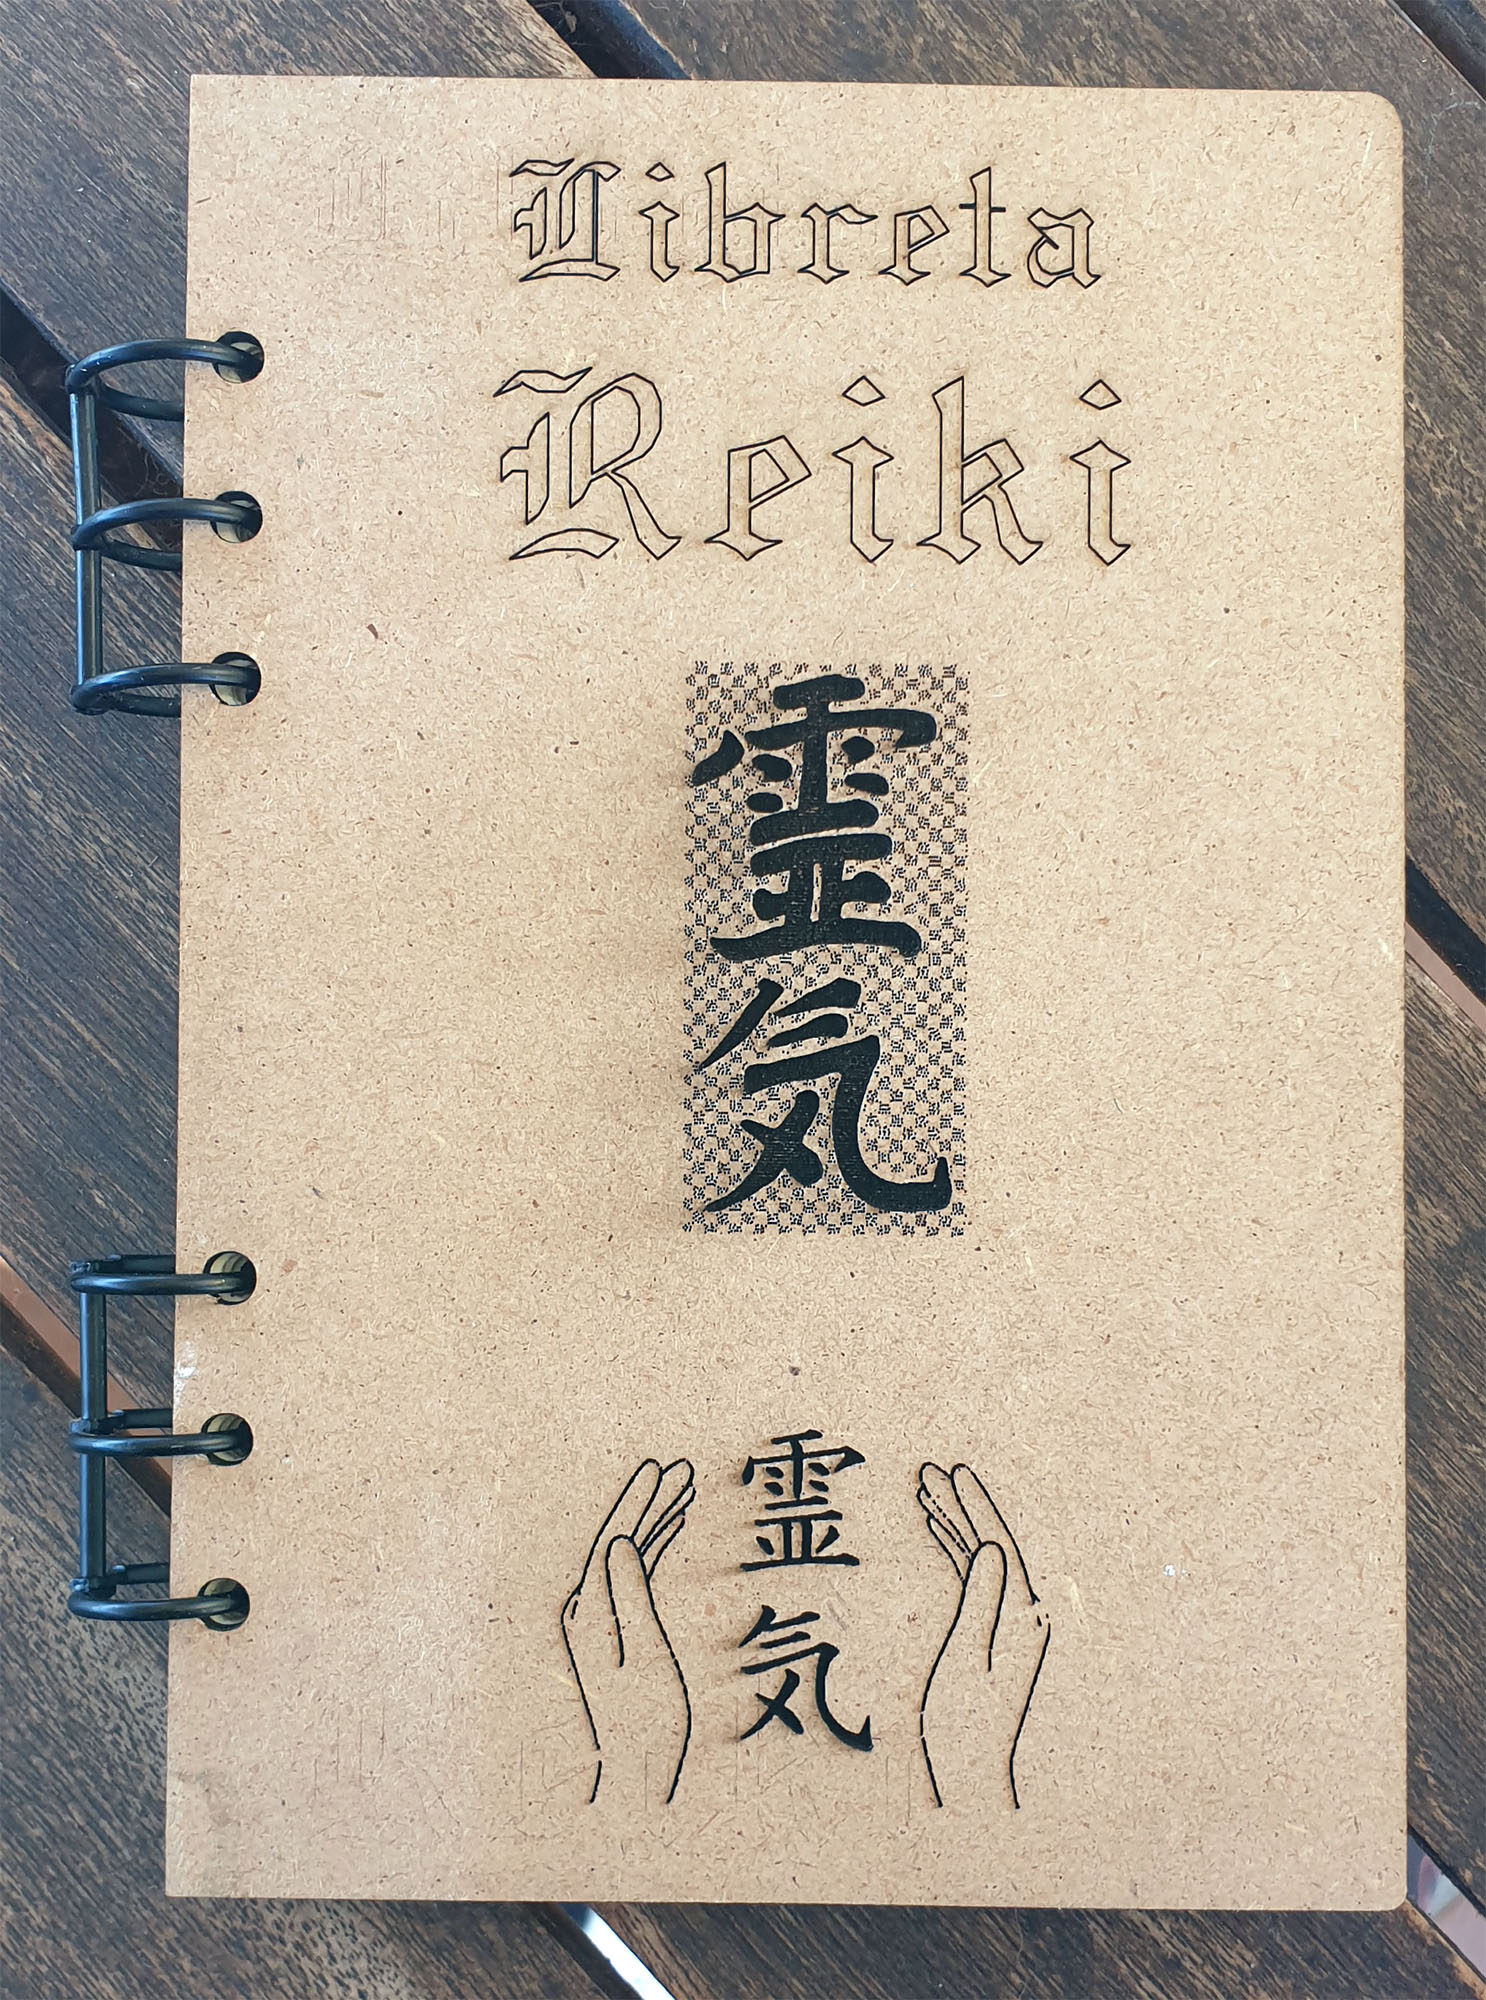 Libreta
Reiki
霊
気
霊
気